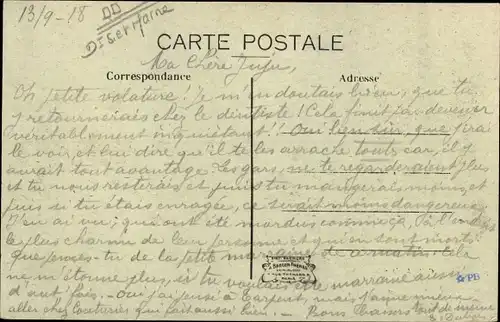 13/9-18
CARTE POSTALE
Ma Chère Juju,
Correspondance
Adresse
Oh petite volature! Je m'en doutais bien que tu
retournerais chez le dentiste! Cela finit par devenir
véritablement inquiétant!! Oui bien sûr, que j'irai
le voir, et lui dire qu'il te les arrache tout car, il y
aurait tout avantage. Les gars, ne te regarderaient plus
et tu nous resterais et puis tu mangerais moins, et
puis si tu étais enragée, ce serait moins dangereux
J'en ai vu, qui ont été mordus comme ça, à l'endroit
le plus charnu de leur personne et qui en sont morts
que penses-tu de la petite de ce matin. Cela
ne m'étonne plus, si tu voulais être marraine aussi
d'aut' fois. - Oui j'ai pensé à mais j'aime mieux
aller chez Couturier qui fait aussi bien. - Bons Baisers tout de même
☆PB